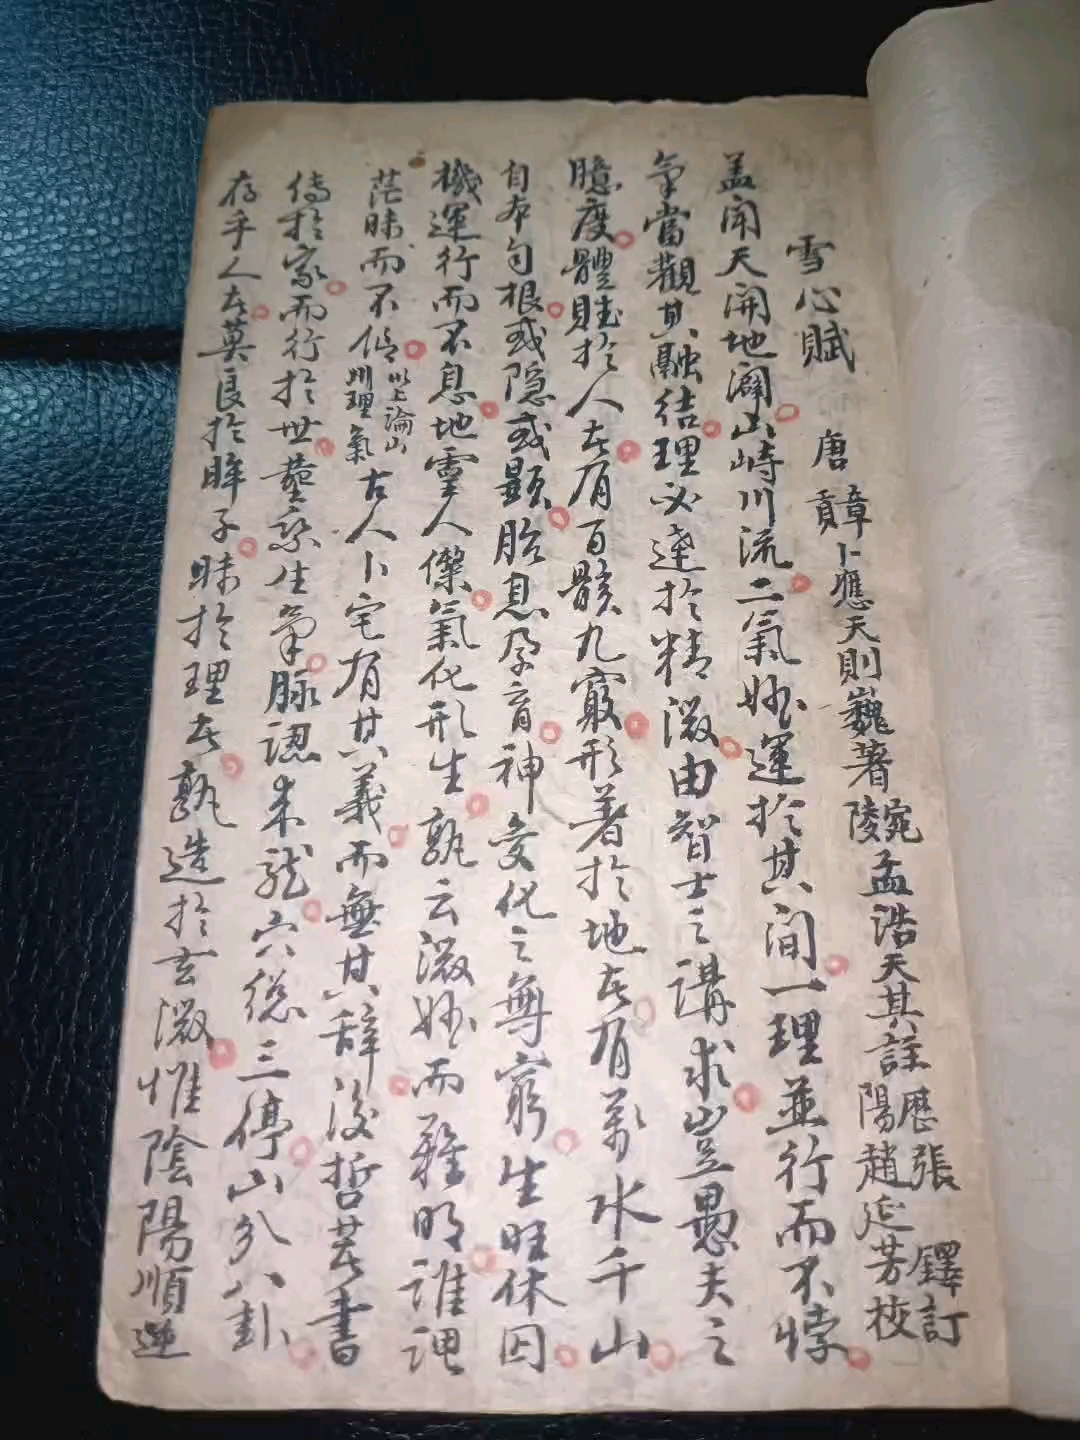 雪心賦 唐 章貢卜應天則巍著 宛陵孟浩天其註 歷陽張鐸訂 趙延芳校
盖聞天開地闢山峙川流二氣妙運於其間一理並行而不悖
氣當觀其融結理必達於精微由智士之講求豈愚夫之
臆度體賦於人者有百骸九竅形著於地者有萬水千山
自本句根或隐或顯胎息孕育神变化之無窮生旺休囚
機運行而不息地霊人傑氣化形生孰云微妙而難明誰謂
茫昧而不信以上論山川理氣古人卜宅有其義而無其辞後哲著書
傳於家而行於世葬乘生氣脉認来龍穴總三停山分八卦
存乎人者莫良於眸子昧於理者孰造於玄微惟陰陽順逆